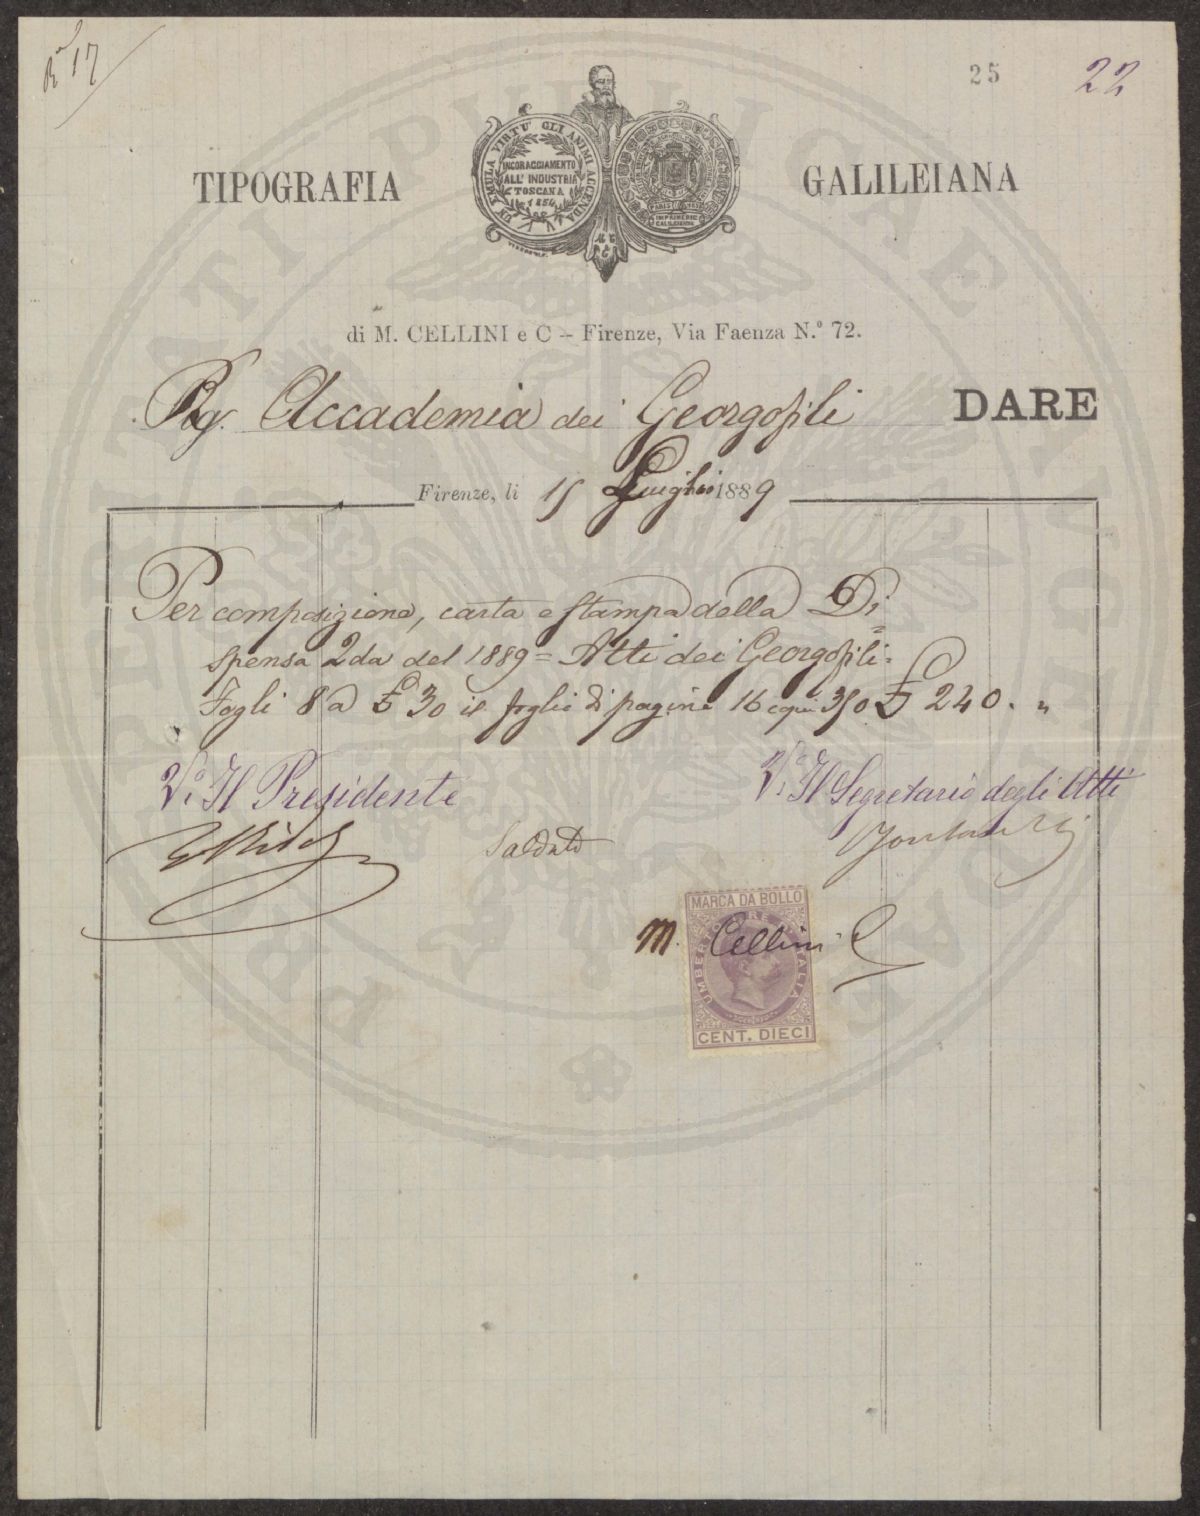 17
25
22
TIPOGRAFIA GALILEIANA
UN EMULA VIRTU' GLI ANIMI ACCENDA
INCORAGGIAMENTO
ALL' INDUSTRIA
TOSCANA
1854
IMPRIMERIE
GALILEIANA
di M. CELLINI e C – Firenze, Via Faenza N.º 72.
Rg. Accademia dei Georgofili DARE
Firenze, li 15 Luiglio 1889
Per composizione, carta e stampa della Di=
spensa 2da del 1889 = Atti dei Georgofili.
Fogli 8 a £ 30 il foglio di pagine 16 e qui 350 £ 240. "
V.º Il Presidente
V.º Il Segretario degli Atti
Saldato
M. Cellini C
MARCA DA BOLLO
UMBERTO I RE D'ITALIA
CENT. DIECI
PIETATI PUBLICAE